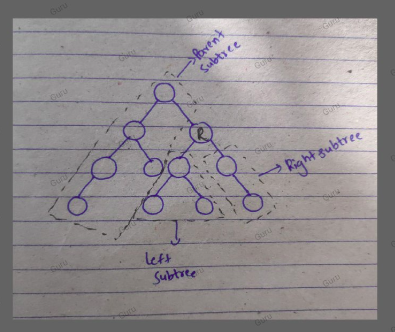 Parent
subtree
R
Right subtree
left
subtree
Guru